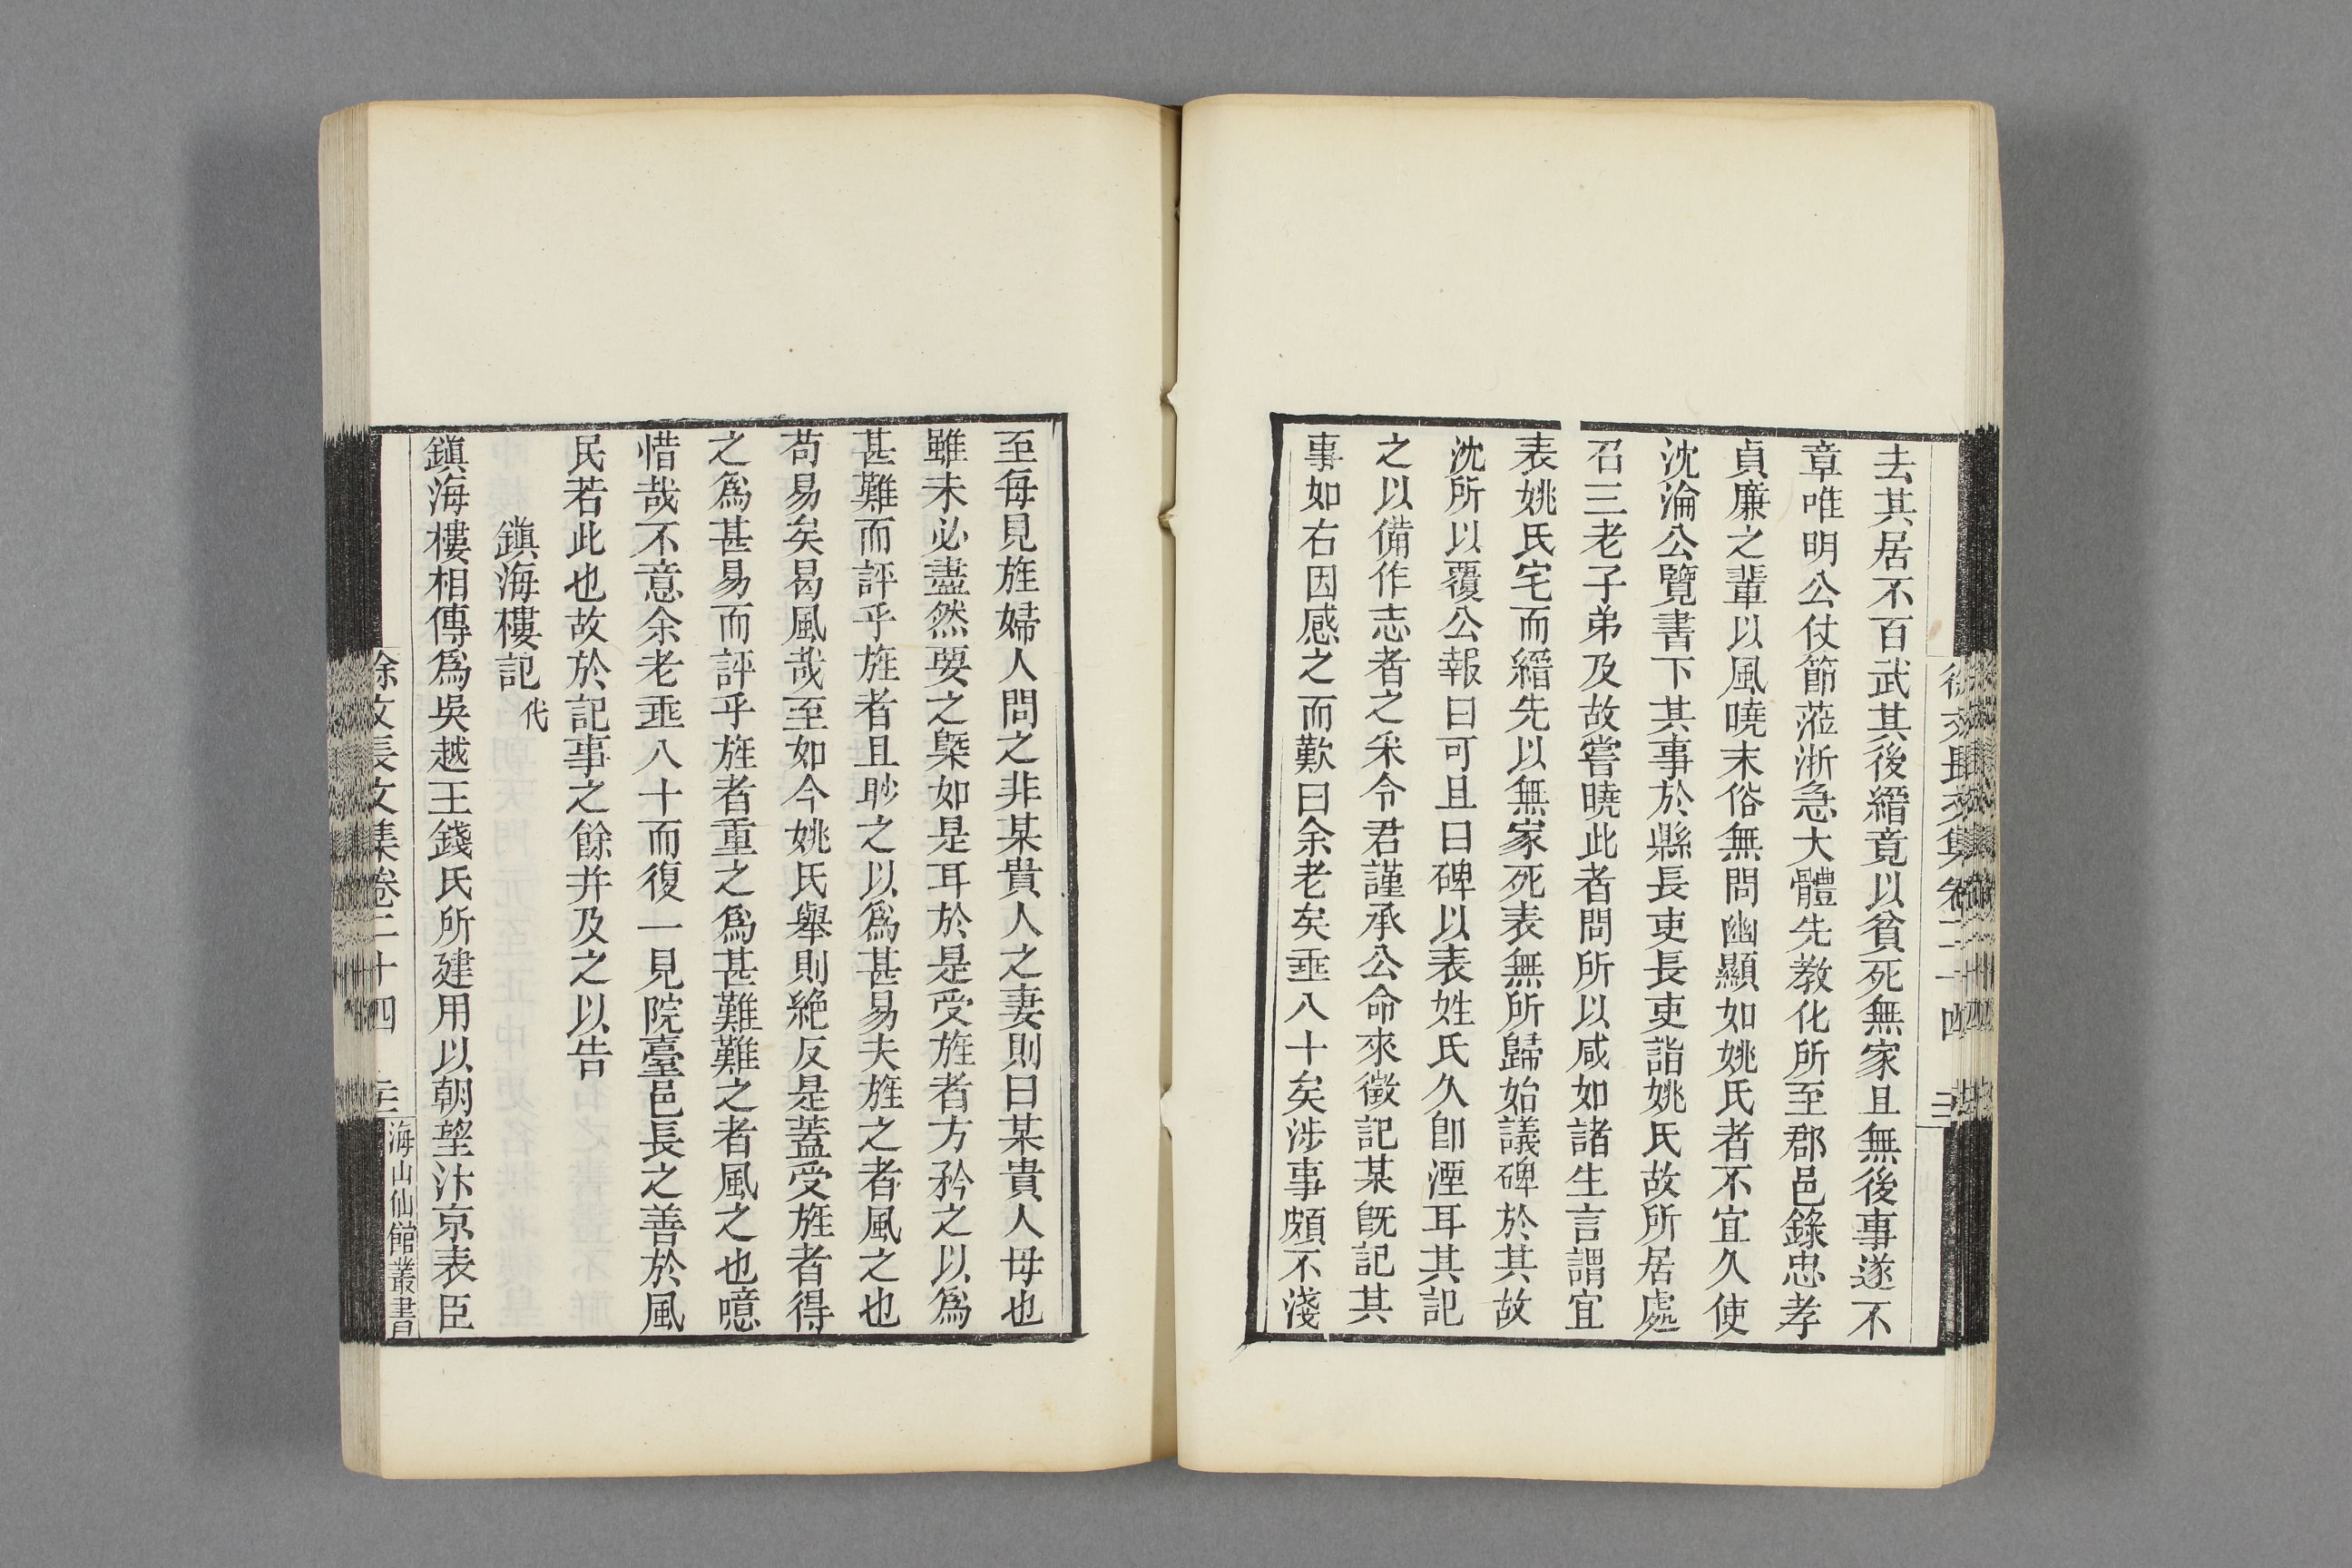 去其居不百武其後縉竟以貧死無家且無後事遂不
章唯明公仗節蒞浙急大體先教化所至郡邑錄忠孝
貞廉之輩以風曉末俗無問幽顯如姚氏者不宜久使
沈淪公覽書下其事於縣長吏長吏詣姚氏故所居處
召三老子弟及故嘗曉此者問所以咸如諸生言謂宜
表姚氏宅而縉先以無家死表無所歸始議碑於其故
沈所以覆公報曰可且曰碑以表姓氏久卽湮耳其記
之以備作志者之采令君謹承公命來徵記某旣記其
事如右因感之而歎曰余老矣垂八十矣涉事頗不淺
至每見旌婦人問之非某貴人之妻則曰某貴人母也
雖未必盡然要之槩如是耳於是受旌者方矜之以爲
甚難而評乎旌者且眇之以爲甚易夫旌之者風之也
苟易矣曷風哉至如今姚氏舉則絶反是蓋受旌者得
之爲甚易而評乎旌者重之爲甚難難之者風之也噫
惜哉不意余老垂八十而復一見院臺邑長之善於風
民若此也故於記事之餘并及之以告
鎭海樓記代
鎭海樓相傳爲吳越王錢氏所建用以朝望汴京表臣
徐文長文集卷二十四
海山仙館叢書